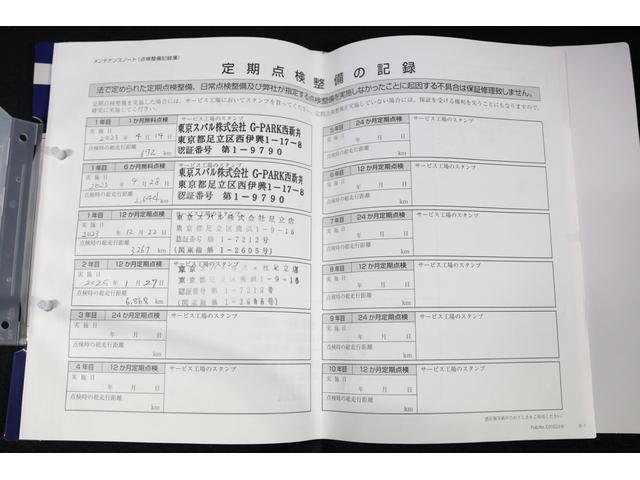 メンテナンスノート(点検整備記録簿)
定期点検整備の記録
法で定められた定期点検整備、日常点検整備及び弊社が指定する点検整備を実施しなかったことに起因する不具合は保証修理致しません。
定期点検整備を実施した場合には、サービス工場においてスタンプを貰ってください。定期点検整備を実施していない場合には、保証を受ける権利を失うことにもなりますので、
確実に実施してください。
1年目 1か月無料点検 サービス工場のスタンプ
実施日
2023年4月19日
点検時の総走行距離
672 km
東京スバル株式会社 G-PARK西新井
東京都足立区西伊興1-17-8
認証番号 第1-9790
1年目 6か月無料点検 サービス工場のスタンプ
実施日
2023年9月28日
点検時の総走行距離
2,644 km
東京スバル株式会社 G-PARK西新井
東京都足立区西伊興1-17-8
認証番号 第1-9790
1年目 12か月定期点検 サービス工場のスタンプ
実施日
2023年12月22日
点検時の総走行距離
3,267 km
東京スバル株式会社足立店
東京都足立区鹿浜1-9-16
認証番号 第1-7212号
(関東指第1-2605号)
2年目 12か月定期点検 サービス工場のスタンプ
実施日
2025年1月27日
点検時の総走行距離
6,868 km
東京スバル株式会社足立店
東京都足立区鹿浜1-9-16
認証番号 第1-7212号
3年目 24か月定期点検 サービス工場のスタンプ
実施日
年 月 日
点検時の総走行距離
km
4年目 12か月定期点検 サービス工場のスタンプ
実施日
年 月 日
点検時の総走行距離
km
5年目 24か月定期点検 サービス工場のスタンプ
実施日
年 月 日
点検時の総走行距離
km
6年目 12か月定期点検 サービス工場のスタンプ
実施日
年 月 日
点検時の総走行距離
km
7年目 24か月定期点検 サービス工場のスタンプ
実施日
年 月 日
点検時の総走行距離
km
8年目 12か月定期点検 サービス工場のスタンプ
実施日
年 月 日
点検時の総走行距離
km
9年目 24か月定期点検 サービス工場のスタンプ
実施日
年 月 日
点検時の総走行距離
km
10年目 12か月定期点検 サービス工場のスタンプ
実施日
年 月 日
点検時の総走行距離
km